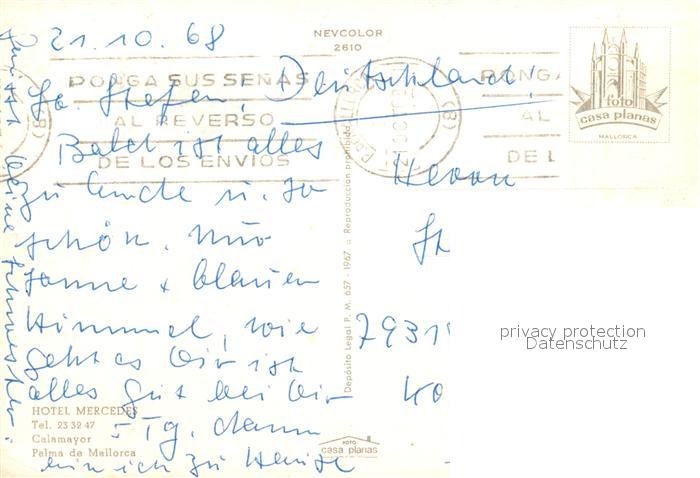 21.10.68
NEVCOLOR
2610
PONGA SUS SEÑAS
AL REVERSO
DE LOS ENVIOS
PONGA
AL
DE L
foto
casa planas
MALLORCA
Deutschland!
Lb. Stefan,
Bald ist alles
zu Ende u. so
schön. Nur
Sonne + blauen
Himmel, wie
geht es Dir ist
alles gut bei Dir
5 Tg. dann
bin ich zu Hause
deine Schwester.
Herrn
St
7931
Ko
Depósito Legal P. M. 657 - 1967 = Reproducción prohibida
HOTEL MERCEDES
Tel. 23 32 47
Calamayor
Palma de Mallorca
FOTO
casa planas
privacy protection
Datenschutz